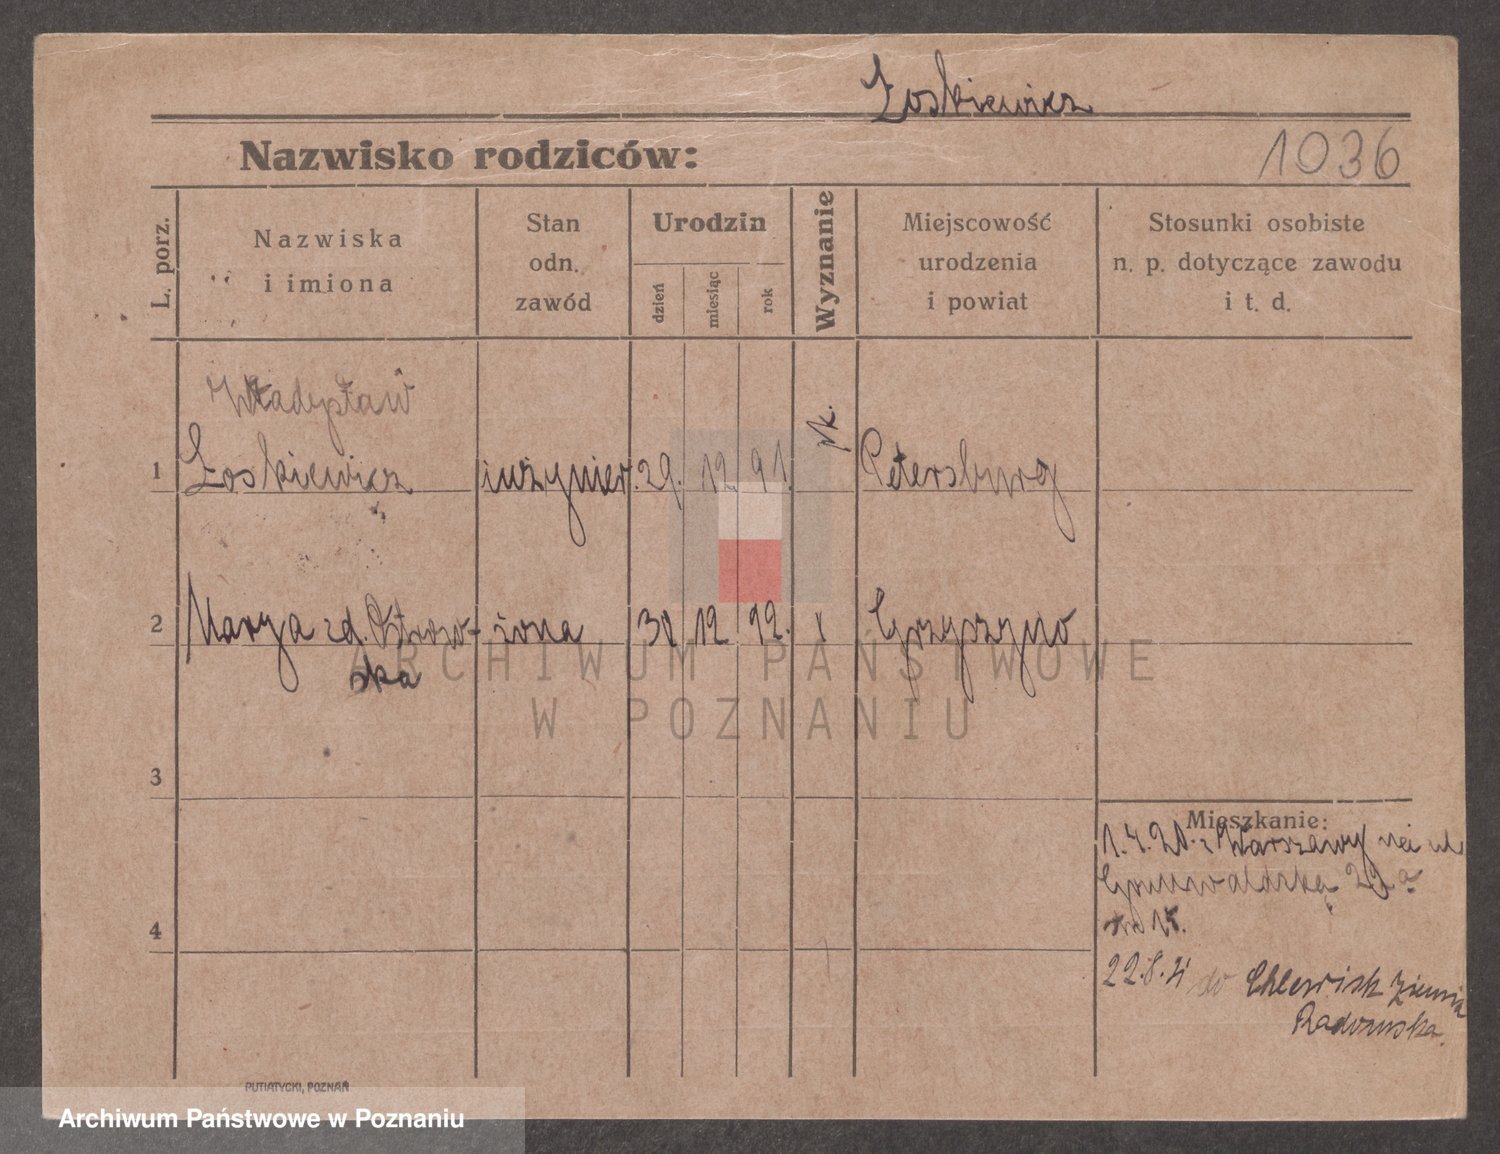 Łoskiewicz
Nazwisko rodziców:
1036
L. porz.
Nazwiska
i imiona
Stan
odn.
zawód
Urodzin
dzień
miesiąc
rok
Wyznanie
Miejscowość
urodzenia
i powiat
Stosunki osobiste
n. p. dotyczące zawodu
i t. d.
Władysław
1 Łoskiewicz inżynier 29. 12 91. rk. Petersburg
2 Marya zd. Ostrow- żona 31 12 92. Grzyszyno
ska
ARCHIWUM PAŃSTWOWE
W POZNANIU
3
Mieszkanie:
1.4.21. z Warszawy na ul
Grunwaldzką 22a
4
22.8.21 do Chlewisk Ziemia
Radomska.
PUTIATYCKI, POZNAŃ
Archiwum Państwowe w Poznaniu